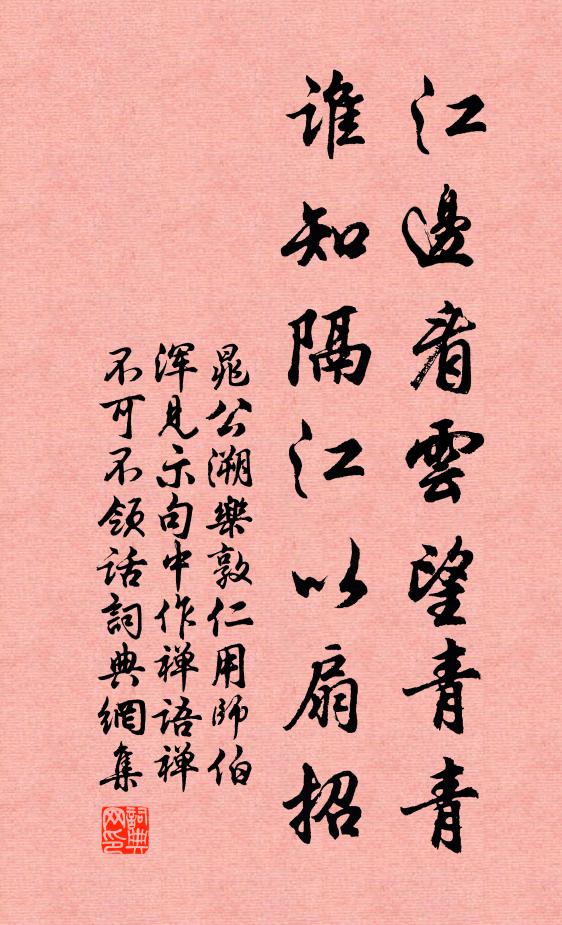 江邊看雲望青青
誰知隔江以扇招
晁公溯樂敦仁用師伯
浑見示句中作禅語禅
不可不领话詞典網集
詞典网印